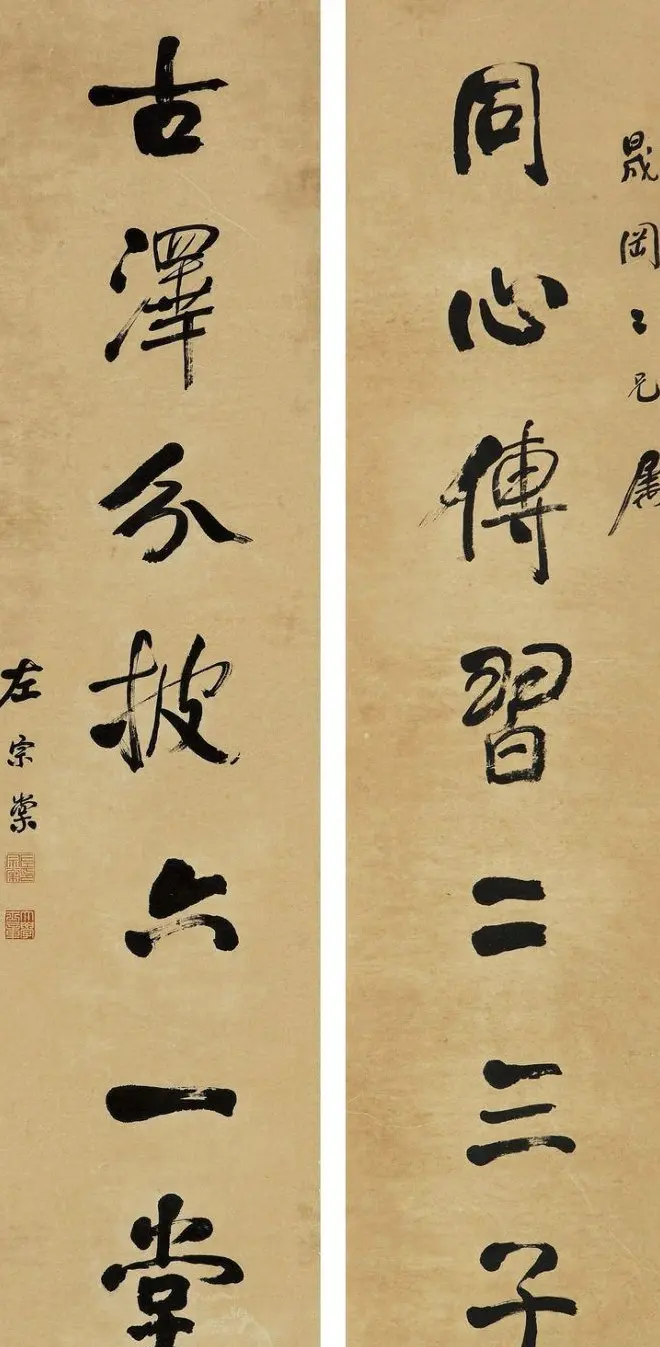 晟岡二兄屬
同心傳習二三子
古澤分披六一堂
左宗棠